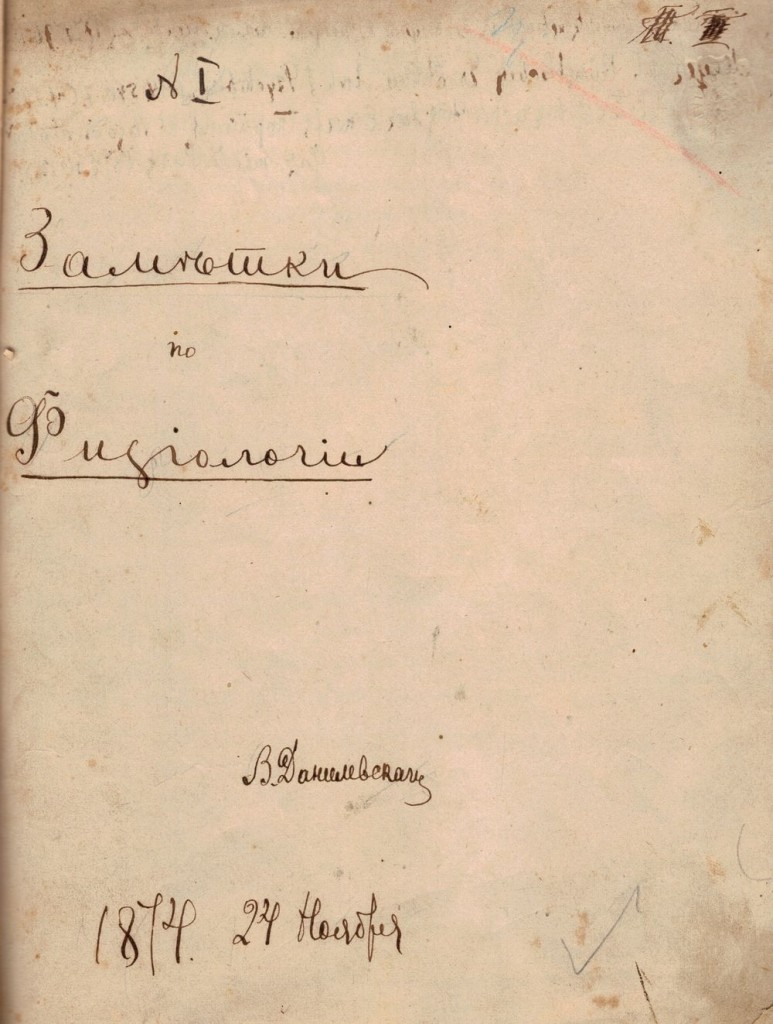 № I
Замѣтки
по
Физіологіи
В. Данилевскаго
1874. 24 Ноября